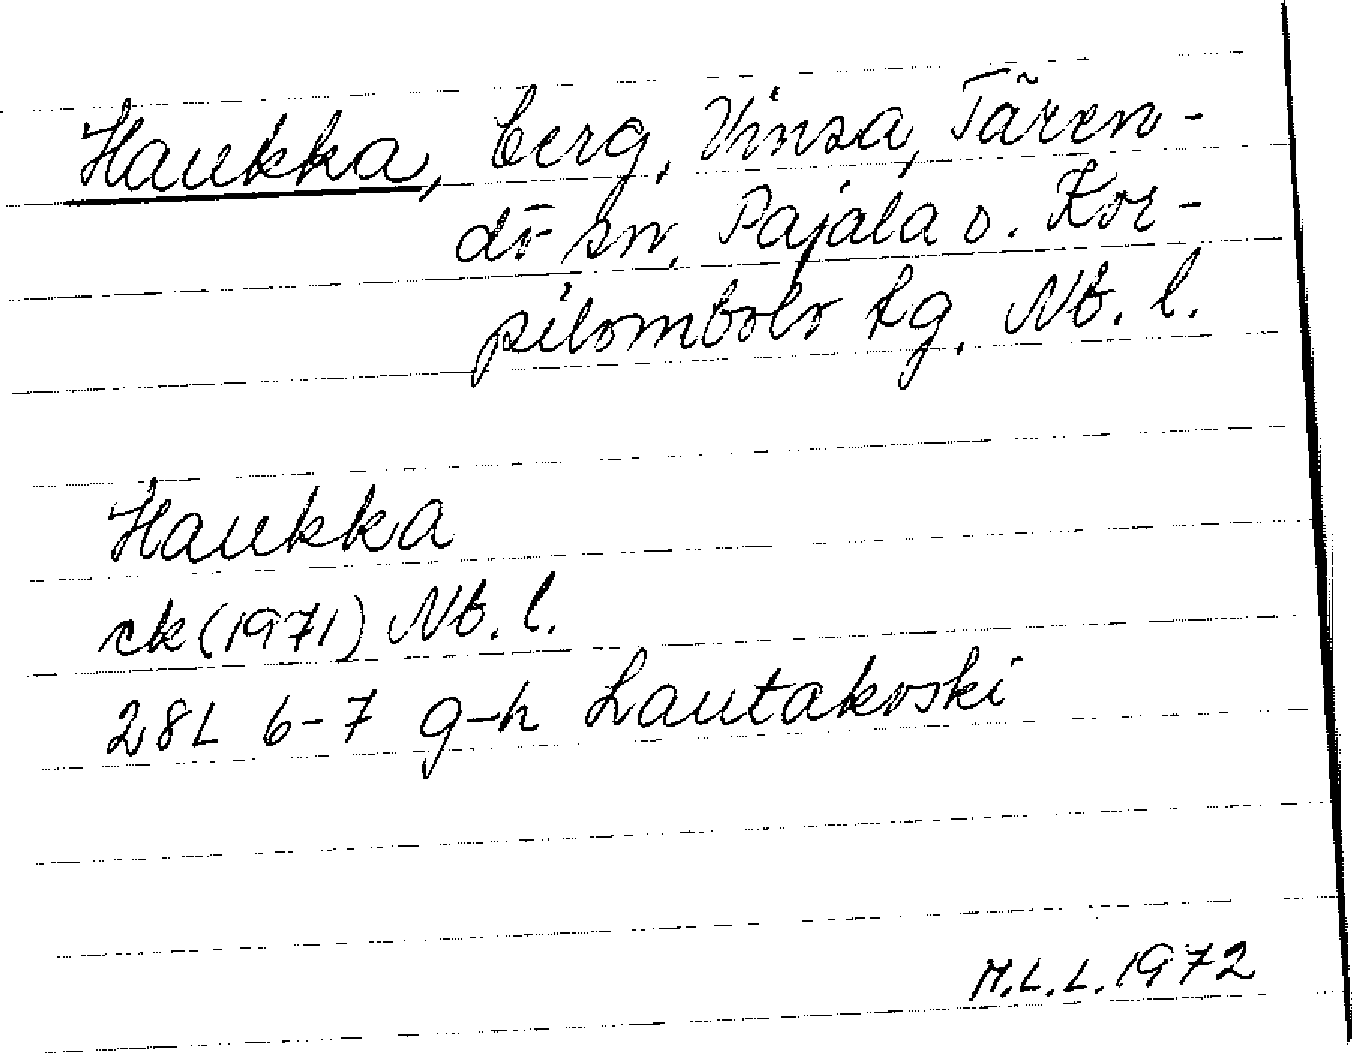 Haukka, berg, Vinsa, Tären-
dö sn, Pajala o. Kor-
pilombolo tg, Nb. l.
Haukka
ek (1971) Nb. l.
28L 6-7 g-h Lautakoski
M.L.L. 1972